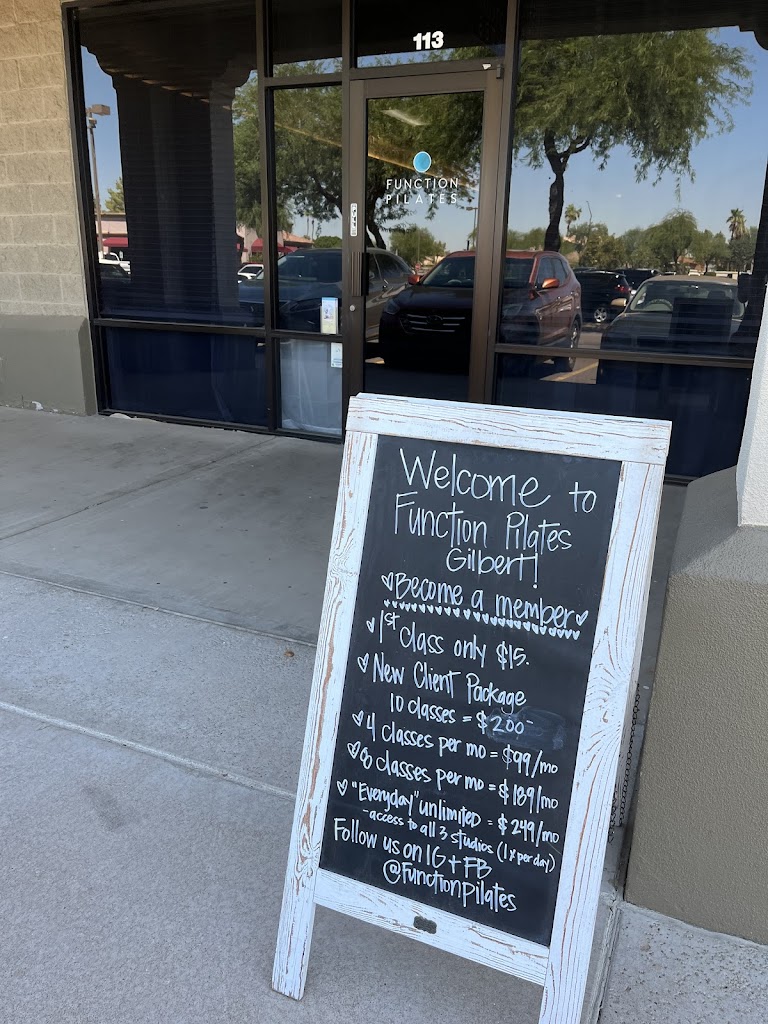 113
FUNCTION
PILATES
Welcome to
Function Pilates
Gilbert!
Become a member
1st class only $15.
New Client Package
10 classes = $200-
4 classes per mo = $99/mo
8 classes per mo = $189/mo
"Everyday" unlimited = $249/mo
- access to all 3 studios (1x per day)
Follow us on IG + FB
@Functionpilates